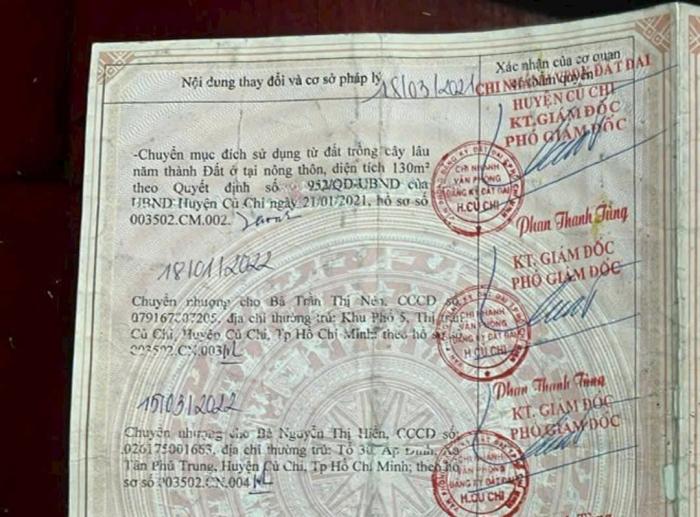 Nội dung thay đổi và cơ sở pháp lý
Xác nhận của cơ quan
có thẩm quyền
18/03/2021
CHI NHÁNH VPĐK ĐẤT ĐAI
HUYỆN CỦ CHI
KT.GIÁM ĐỐC
PHÓ GIÁM ĐỐC
-Chuyển mục đích sử dụng từ đất trồng cây lâu
năm thành Đất ở tại nông thôn, diện tích 130m²
theo Quyết định số 952/QD-UBND của
UBND Huyện Củ Chi ngày 21/01/2021, hồ sơ số
003502.CM.002.
CHI NHÁNH
VĂN PHÒNG
ĐĂNG KÝ ĐẤT ĐAI
H.CỦ CHI
Phan Thanh Tùng
18/01/2022
KT. GIÁM ĐỐC
PHÓ GIÁM ĐỐC
Chuyển nhượng cho Bà Trần Thị Nên, CCCD số
079167007205, địa chỉ thường trú: Khu Phố 5, Thị trấn
Củ Chi, Huyện Củ Chi, Tp Hồ Chí Minh; theo hồ sơ số
003502.CN.003
CHI NHÁNH
VĂN PHÒNG
ĐĂNG KÝ ĐẤT ĐAI
H.CỦ CHI
Phan Thanh Tùng
15/03/2022
KT. GIÁM ĐỐC
PHÓ GIÁM ĐỐC
Chuyển nhượng cho Bà Nguyễn Thị Hiền, CCCD số:
026175001663, địa chỉ thường trú: Tổ 30, Ấp Đình, Xã
Tân Phú Trung, Huyện Củ Chi, Tp Hồ Chí Minh; theo hồ
sơ số 003502.CN.004
CHI NHÁNH
VĂN PHÒNG
ĐĂNG KÝ ĐẤT ĐAI
H.CỦ CHI